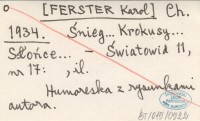 [FERSTER Karol] Ch.
1934. Śnieg... Krokusy...
Słońce... - Światowid 11,
nr 17: , il.
Humoreska z rysunkami
autora.